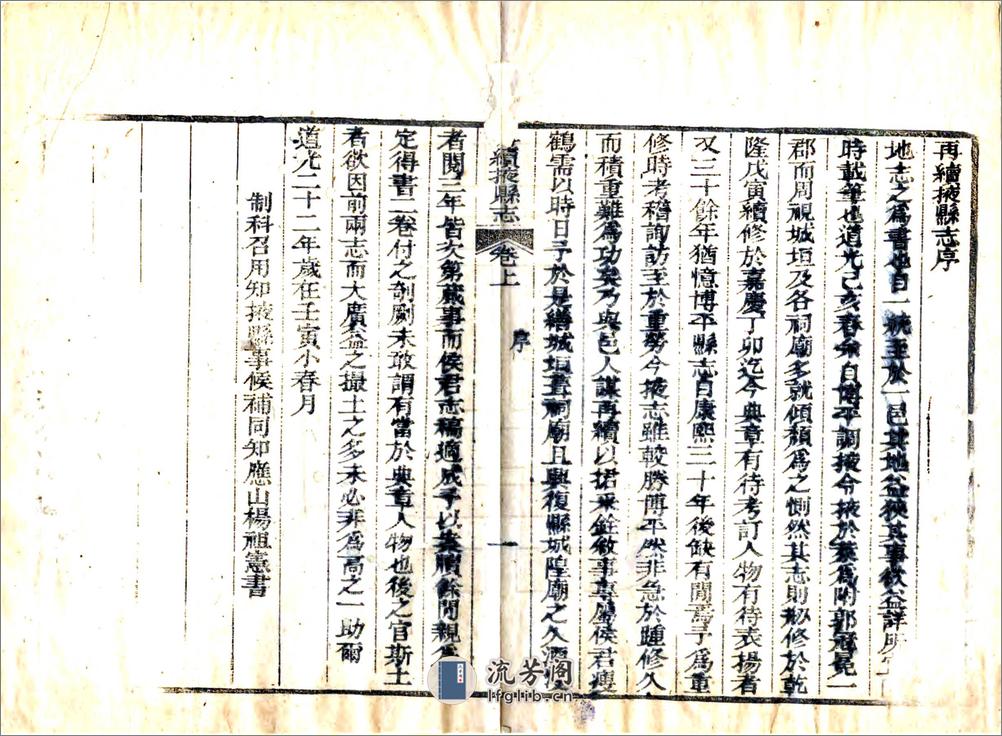 再續掖縣志序
地志之爲書也自一統至於一邑其地益狹其事欲益詳所
時載筆也道光己亥春余自博平調掖令掖於萊爲附郭冠冕一
郡而周視城垣及各祠廟多就傾頽爲之惻然其志則刱修於乾
隆戊寅續修於嘉慶丁卯迄今典章有待考訂人物有待表揚者
又三十餘年猶憶博平縣志自康熙三十年後缺有聞焉予爲重
修時考稽詢訪至於重勞今掖志雖較勝博平然非急於踵修久
而積重難爲功矣乃與邑人謀再續以捃采銓敘事專屬侯君瘦
鶴需以時日予於是繕城垣葺祠廟且興復縣城隍廟之久
續掖縣志
卷上
序
一
者閱三年皆次第蕆事而侯君志稿適成予以案牘餘閒親爲
定得書二卷付之剞劂未敢謂有當於典章人物也後之官斯土
者欲因前兩志而大廣益之撮土之多未必非爲高之一助爾
道光二十二年歲在壬寅小春月
制科召用知掖縣事候補同知應山楊祖憲書
流芳閣
lfglib.cn